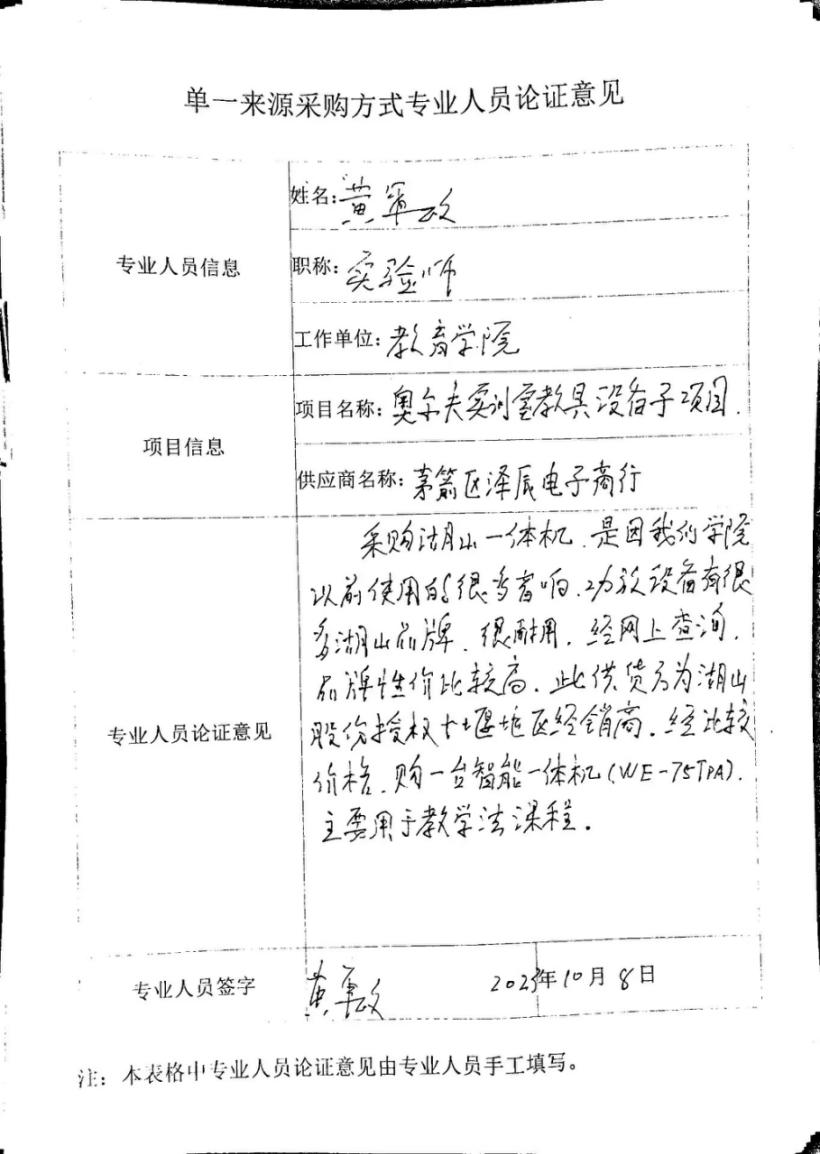 单一来源采购方式专业人员论证意见
专业人员信息
姓名:黄军政
职称:实验师
工作单位:教育学院
项目信息
项目名称:奥尔夫实训室教具设备子项目.
供应商名称:茅箭区泽辰电子商行
专业人员论证意见
采购湖山一体机.是因我们学院
以前使用的很多音响.功放设备有很
多湖山品牌.很耐用.经网上查询.
品牌性价比较高.此供货方为湖山
股份授权十堰地区经销商.经比较
价格.购一台智能一体机(WE-75TPA).
主要用于教学法课程.
专业人员签字
黄军政
2023年10月8日
注：本表格中专业人员论证意见由专业人员手工填写。